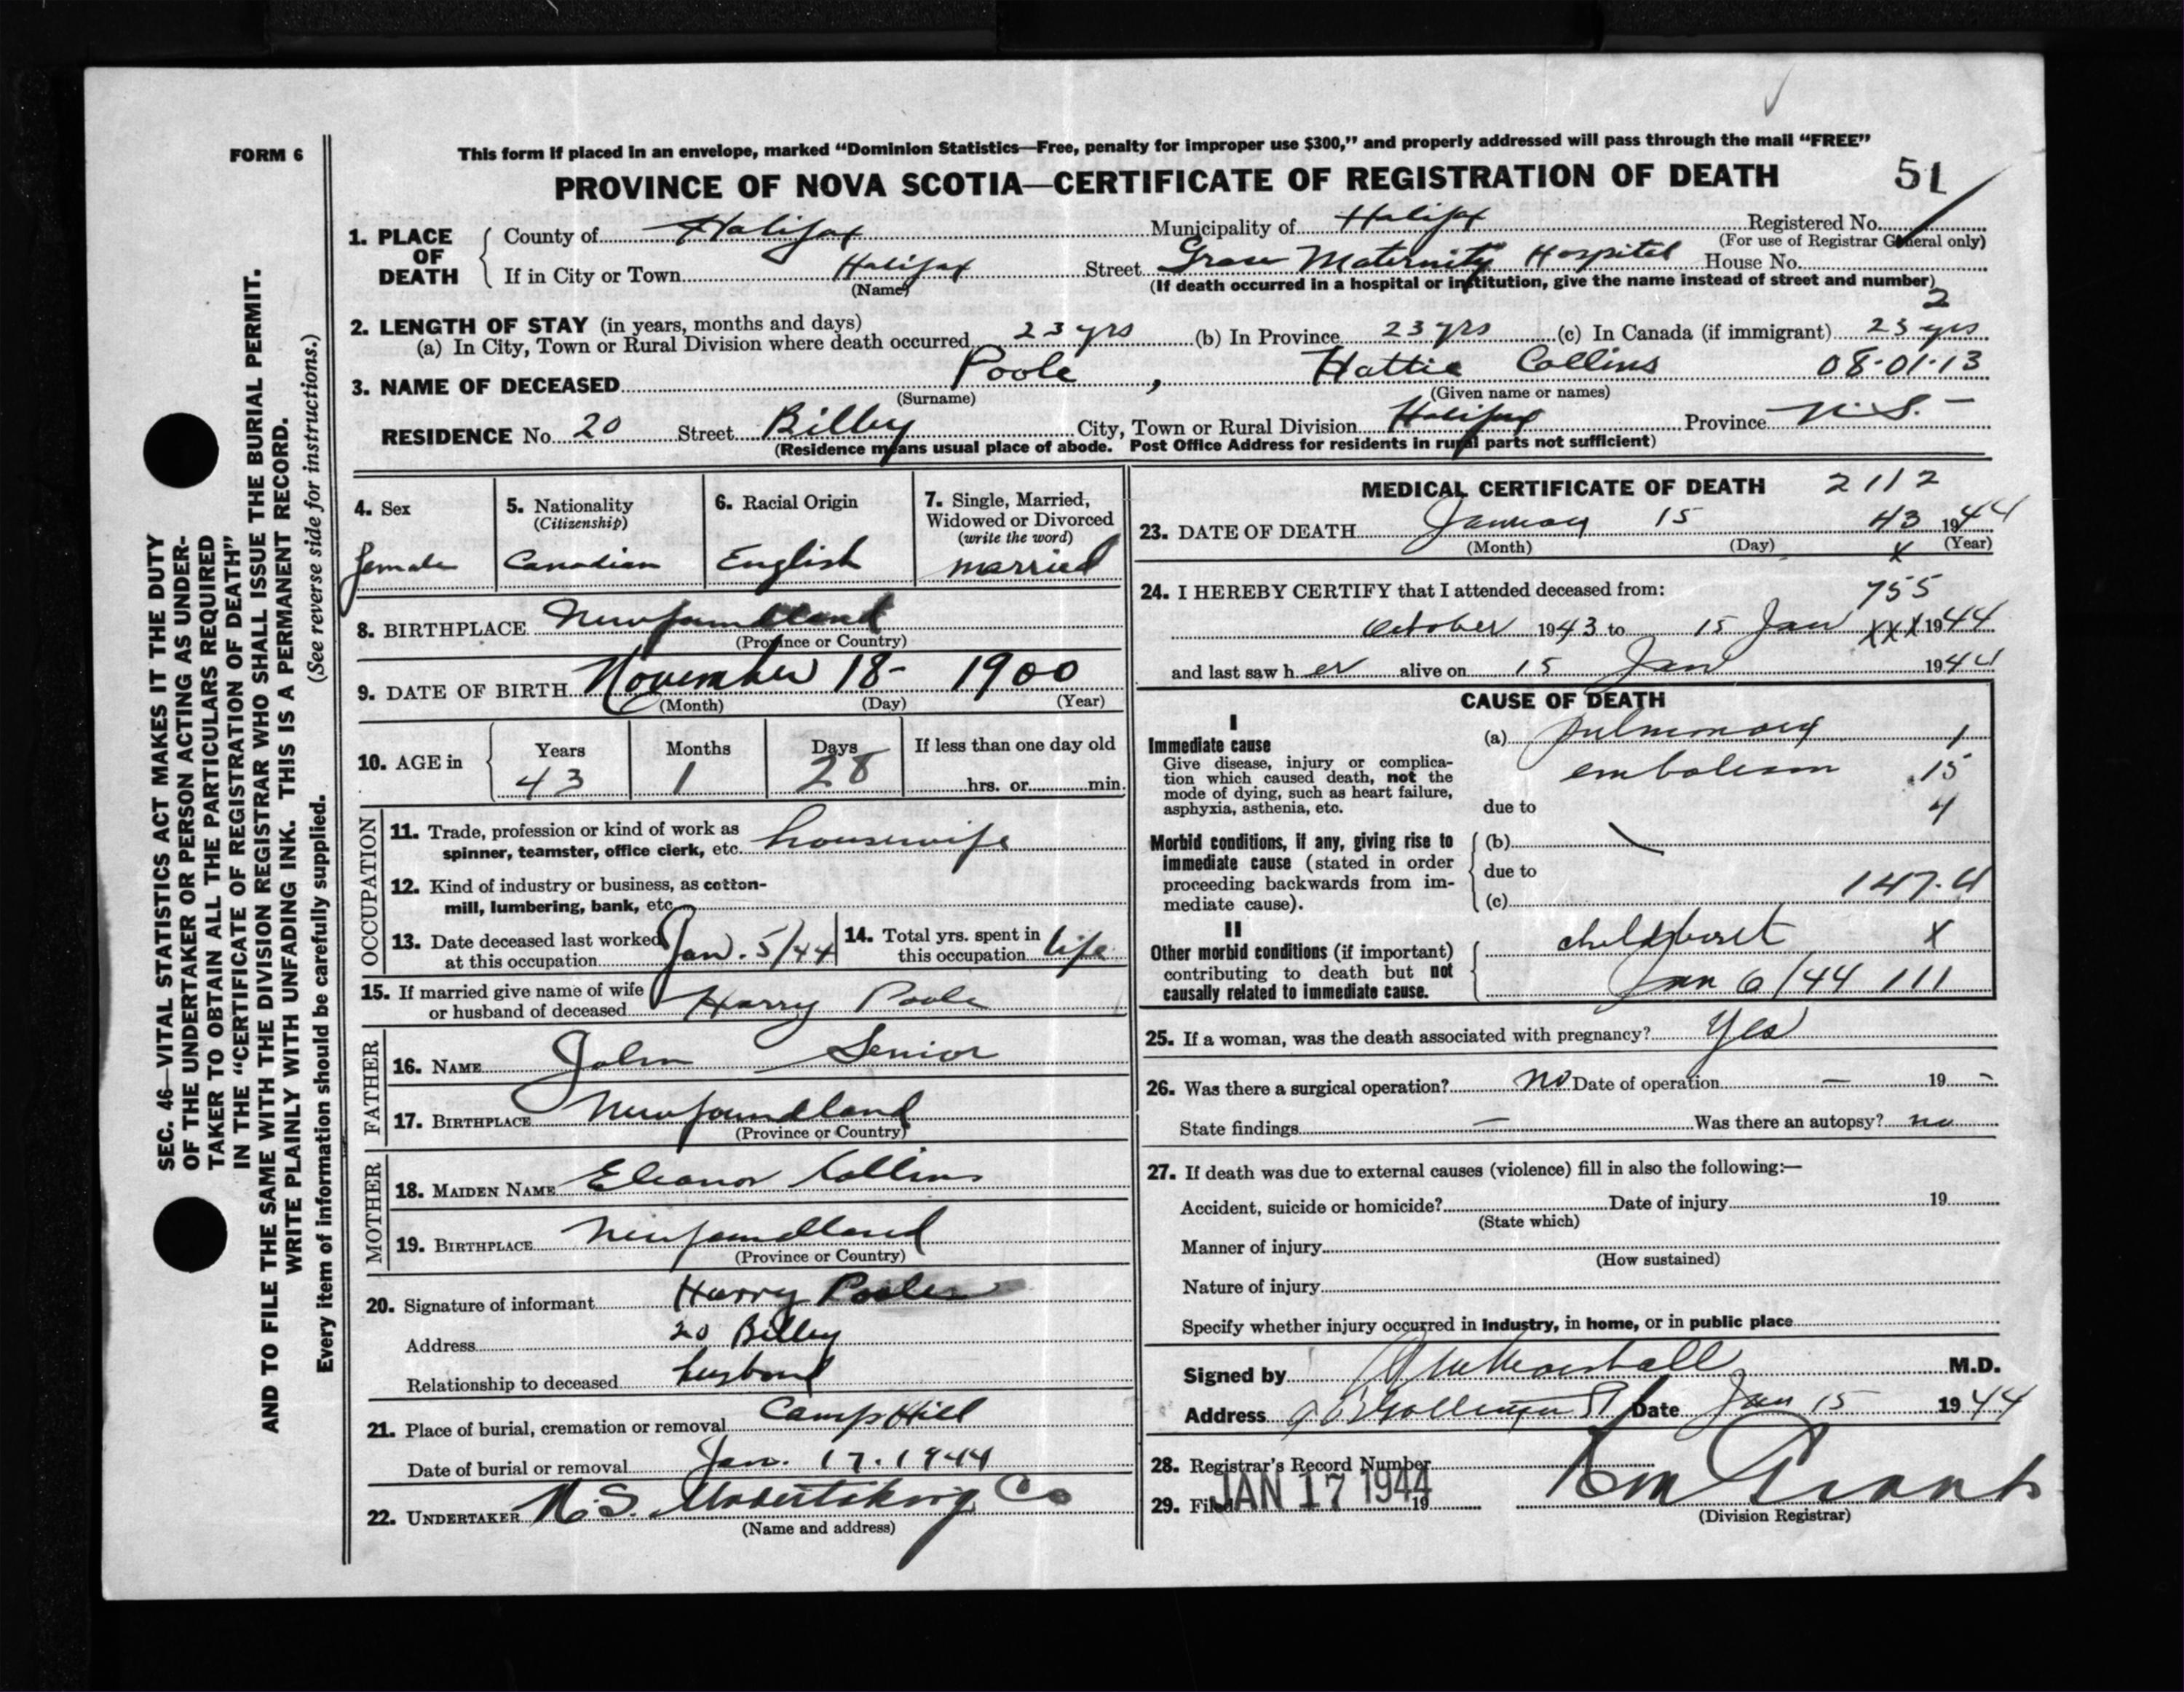 FORM 6
This form if placed in an envelope, marked “Dominion Statistics—Free, penalty for improper use $300,” and properly addressed will pass through the mail “FREE”
PROVINCE OF NOVA SCOTIA—CERTIFICATE OF REGISTRATION OF DEATH 51
1. PLACE OF DEATH { County of Halifax Municipality of Halifax Registered No.
(For use of Registrar General only)
If in City or Town Halifax Street Grace Maternity Hospital House No.
(Name) (If death occurred in a hospital or institution, give the name instead of street and number)
2
2. LENGTH OF STAY (in years, months and days)
(a) In City, Town or Rural Division where death occurred 23 yrs (b) In Province 23 yrs (c) In Canada (if immigrant) 23 yrs
3. NAME OF DECEASED Poole, Hattie Collins 08-01-13
(Surname) (Given name or names)
RESIDENCE No. 20 Street Bilby City, Town or Rural Division Halifax Province N.S.
(Residence means usual place of abode. Post Office Address for residents in rural parts not sufficient)
4. Sex female
5. Nationality (Citizenship) Canadian
6. Racial Origin English
7. Single, Married, Widowed or Divorced (write the word) married
8. BIRTHPLACE Newfoundland
(Province or Country)
9. DATE OF BIRTH November 18 - 1900
(Month) (Day) (Year)
10. AGE in Years 43 Months 1 Days 28 If less than one day old
hrs. or min.
OCCUPATION
11. Trade, profession or kind of work as
spinner, teamster, office clerk, etc. housewife
12. Kind of industry or business, as cotton-
mill, lumbering, bank, etc.
13. Date deceased last worked
at this occupation Jan. 5/44
14. Total yrs. spent in
this occupation life
15. If married give name of wife
or husband of deceased Harry Poole
FATHER
16. NAME John Senior
17. BIRTHPLACE Newfoundland
(Province or Country)
MOTHER
18. MAIDEN NAME Eleanor Collins
19. BIRTHPLACE Newfoundland
(Province or Country)
20. Signature of informant Harry Poole
Address 20 Bilby
Relationship to deceased husband
21. Place of burial, cremation or removal Camp Hill
Date of burial or removal Jan. 17. 1944
22. UNDERTAKER N.S. Undertaking Co
(Name and address)
MEDICAL CERTIFICATE OF DEATH 2112
23. DATE OF DEATH January 15 43 1944
(Month) (Day) (Year)
x
24. I HEREBY CERTIFY that I attended deceased from: 755
October 1943 to 15 Jan XXX 1944
and last saw her alive on 15 Jan 1944
CAUSE OF DEATH
I
Immediate cause
Give disease, injury or complica-
tion which caused death, not the
mode of dying, such as heart failure,
asphyxia, asthenia, etc.
(a) pulmonary 1
embolism 15
due to 4
Morbid conditions, if any, giving rise to
immediate cause (stated in order
proceeding backwards from im-
mediate cause).
(b)
due to
(c) 147.4
II
Other morbid conditions (if important)
contributing to death but not
causally related to immediate cause.
x
Jan 6/44 111
25. If a woman, was the death associated with pregnancy? Yes
26. Was there a surgical operation? no Date of operation — 19 —
State findings — Was there an autopsy? no
27. If death was due to external causes (violence) fill in also the following:—
Accident, suicide or homicide? Date of injury 19
(State which)
Manner of injury
(How sustained)
Nature of injury
Specify whether injury occurred in industry, in home, or in public place
Signed by Marshall M.D.
Address Date Jan 15 1944
28. Registrar's Record Number
29. Filed JAN 17 1944 19
(Division Registrar)
SEC. 46—VITAL STATISTICS ACT MAKES IT THE DUTY
OF THE UNDERTAKER OR PERSON ACTING AS UNDER-
TAKER TO OBTAIN ALL THE PARTICULARS REQUIRED
IN THE “CERTIFICATE OF REGISTRATION OF DEATH”
AND TO FILE THE SAME WITH THE DIVISION REGISTRAR WHO SHALL ISSUE THE BURIAL PERMIT.
WRITE PLAINLY WITH UNFADING INK. THIS IS A PERMANENT RECORD.
Every item of information should be carefully supplied. (See reverse side for instructions.)